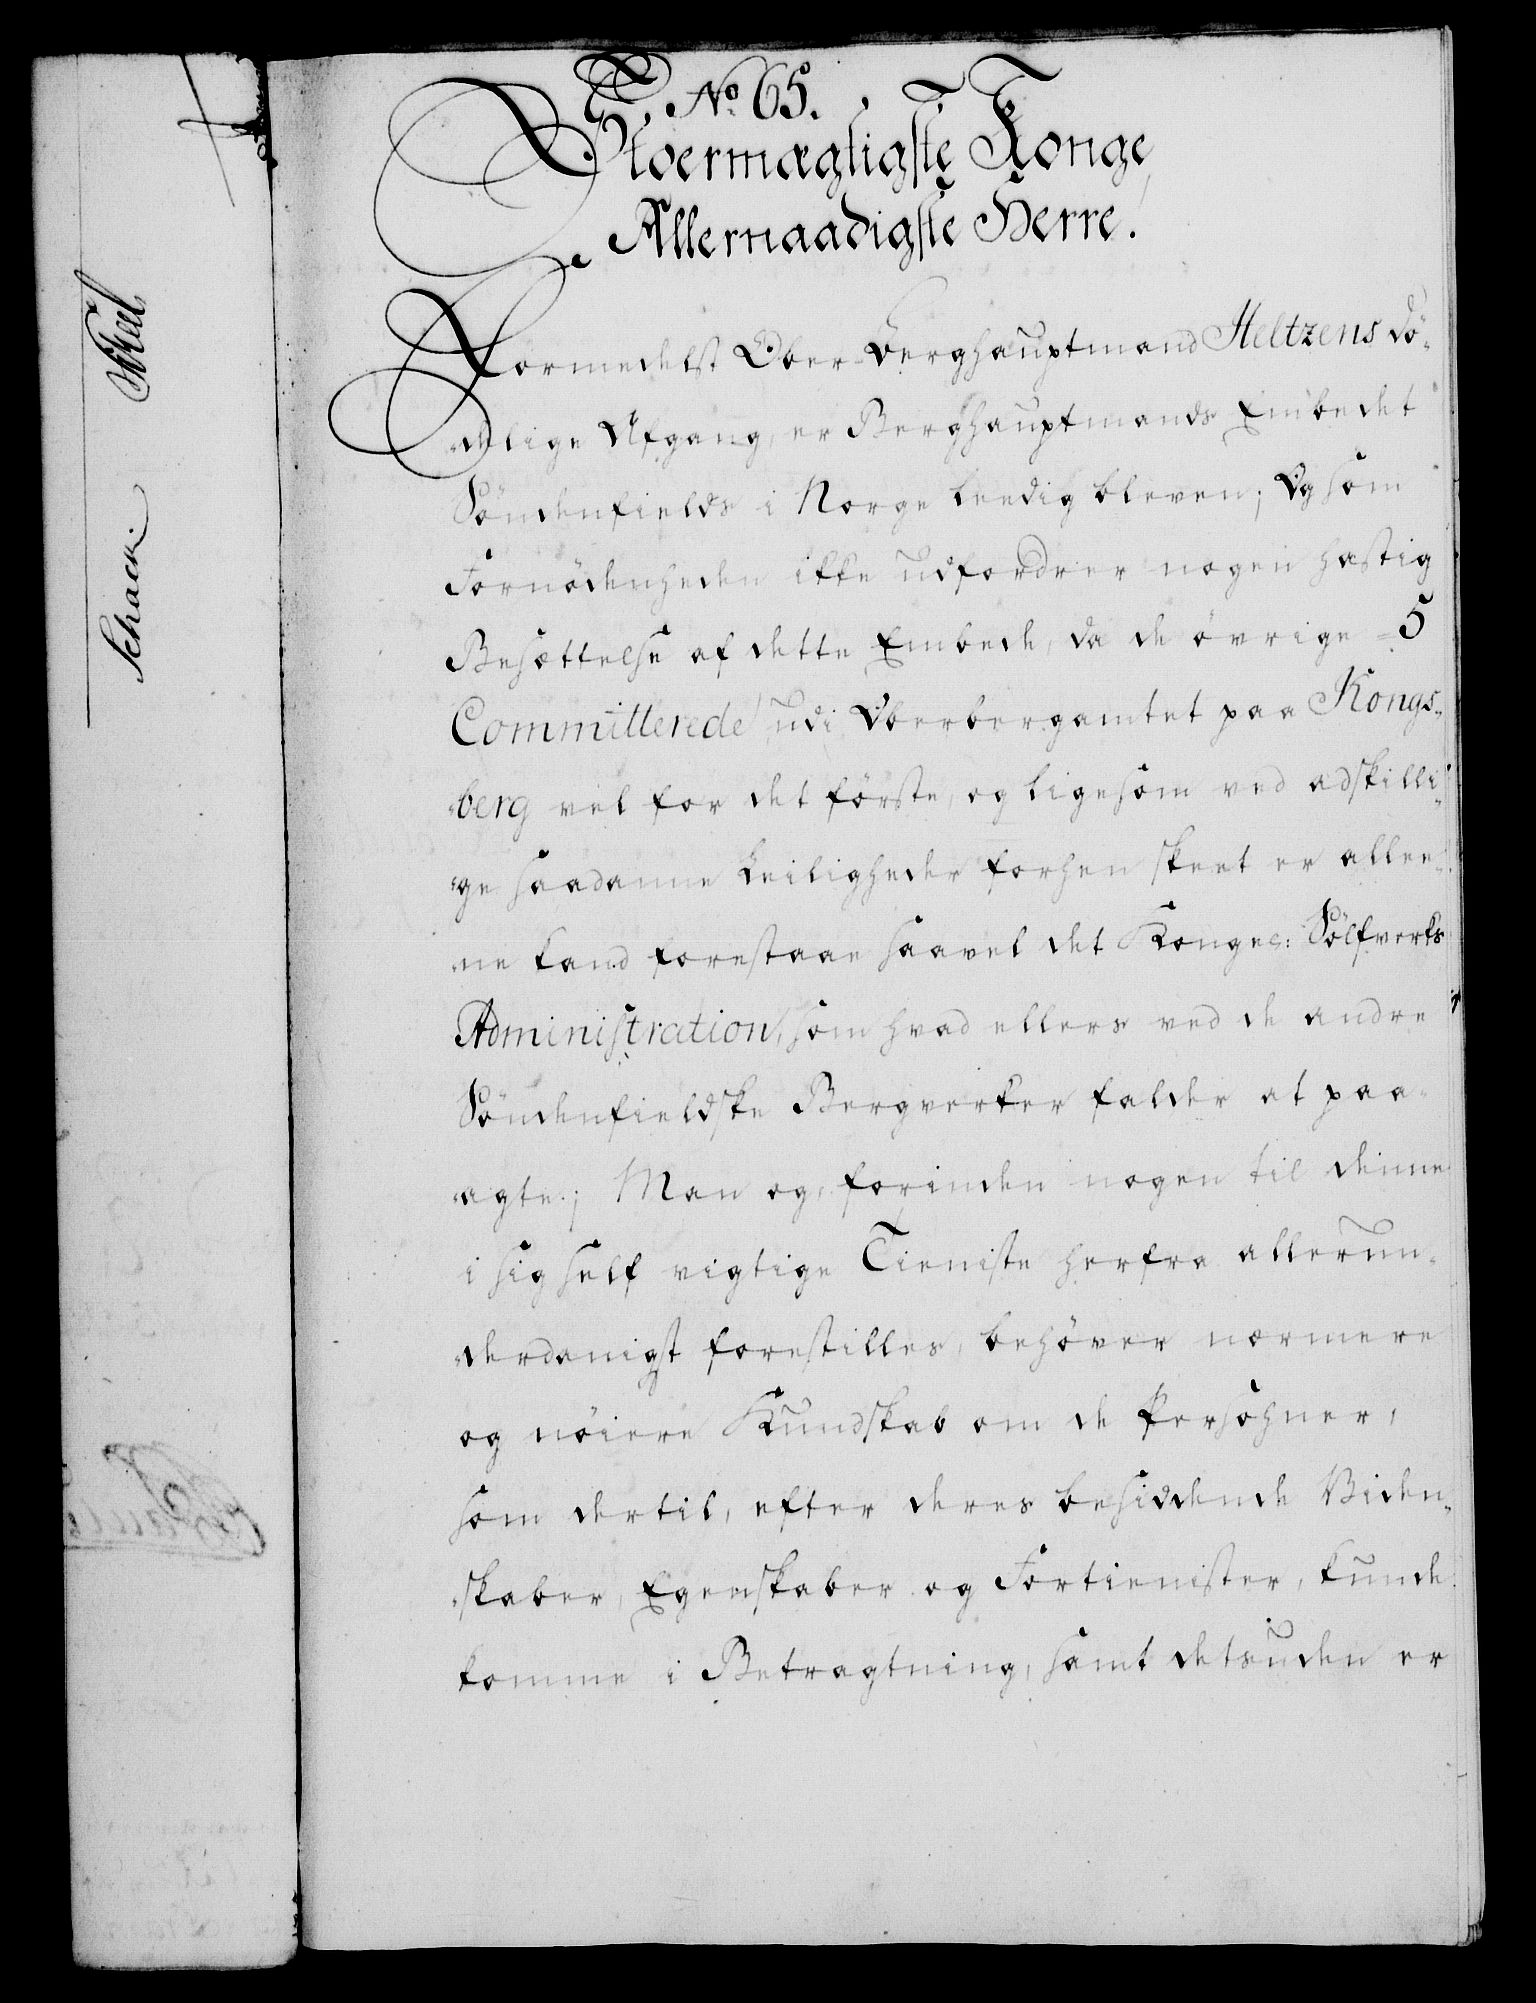 No. 65.
Stoermægtigste Konge
Allernaadigste Herre.
Formedelst Ober-Berghauptmand Heltzens dö-
delige Afgang, er Berghauptmands Embedet
Söndenfields i Norge leedig bleven; Og som
Fornödenheden ikke udfordrer nogen hastig
Besættelse af dette Embede, da de övrige 5
Committerede udi Oberbergamtet paa Kongs-
berg vel for det förste, og ligesom ved adskilli-
ge saadanne Leiligheder forhen skeet er allee-
ne kand forestaae saavel det Konge: Sölfverks
Administration, som hvad ellers ved de andre
Söndenfieldske Bergverker falder at paa-
agte; Man og, forinden nogen til denne
i sig self vigtige Tieniste herfra allerun-
derdanigst forestilles, behöver nærmere
og nöiere Kundskab om de Persohner,
som dertil, efter deres besiddende Viden-
skaber, Egenskaber og Fortienister, kunde
komme i Betragtning, samt detsuden er
Schack.